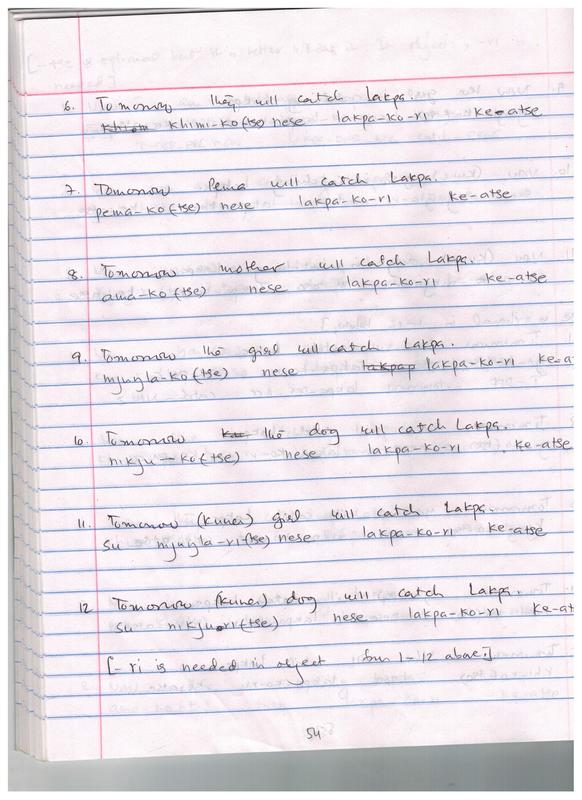 6. Tomorrow they will catch Lakpa.
khimi-ko(tse) nese lakpa-ko-ri ke-atse
7. Tomorrow Pema will catch Lakpa.
pema-ko(tse) nese lakpa-ko-ri ke-atse
8. Tomorrow mother will catch Lakpa.
ama-ko(tse) nese lakpa-ko-ri ke-atse
9. Tomorrow the girl will catch Lakpa.
mjuŋla-ko(tse) nese lakpap lakpa-ko-ri ke-a
10. Tomorrow the dog will catch Lakpa.
nikju-ko(tse) nese lakpa-ko-ri ke-atse
11. Tomorrow (kunei) girl will catch Lakpa.
su mjuŋla-ri(tse) nese lakpa-ko-ri ke-atse
12 Tomorrow (kunei) dog will catch Lakpa.
su nikju-ri(tse) nese lakpa-ko-ri ke-at
[-ri is needed in object from 1-12 above.]
54